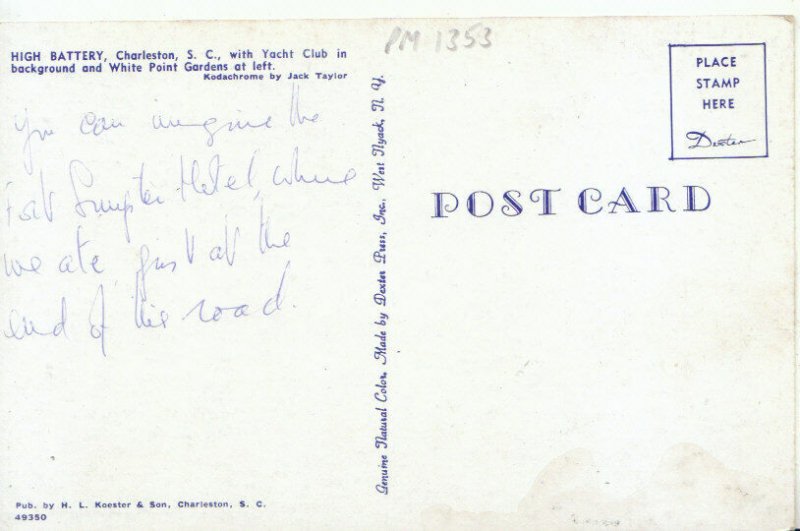 PM 1353
HIGH BATTERY, Charleston, S. C., with Yacht Club in
background and White Point Gardens at left.
Kodachrome by Jack Taylor
You can imagine the
Fort Sumpter Hotel, where
we ate, just at the
end of this road.
Pub. by H. L. Koester & Son, Charleston, S. C.
49350
Genuine Natural Color. Made by Dexter Press, Inc., West Nyack, N. Y.
PLACE
STAMP
HERE
Dexter
POST CARD